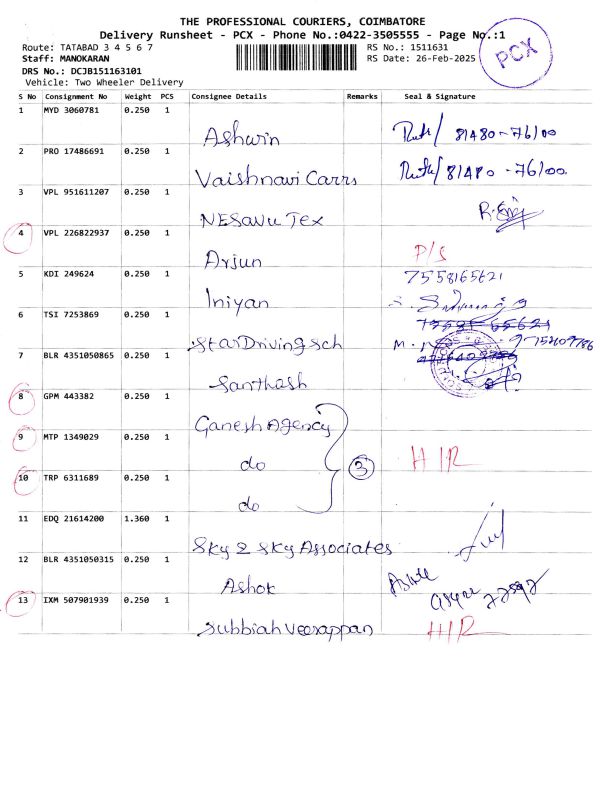 THE PROFESSIONAL COURIERS, COIMBATORE
Delivery Runsheet - PCX - Phone No.:0422-3505555 - Page No.:1
PCX
Route: TATABAD 3 4 5 6 7
RS No.: 1511631
Staff: MANOKARAN
RS Date: 26-Feb-2025
DRS No.: DCJB151163101
Vehicle: Two Wheeler Delivery
S No Consignment No Weight PCS Consignee Details Remarks Seal & Signature
1 MYD 3060781 0.250 1
Ashwin 81480-76100
2 PRO 17486691 0.250 1
Vaishnavi Carrs 81480-76100
3 VPL 951611207 0.250 1
NESavu Tex
4 VPL 226822937 0.250 1
Arjun P/S
5 KDI 249624 0.250 1 7558165621
Iniyan
6 TSI 7253869 0.250 1
StarDriving Sch
7 BLR 4351050865 0.250 1
Santhosh
8 GPM 443382 0.250 1
Ganesh Agency
9 MTP 1349029 0.250 1
do 3 H/R
10 TRP 6311689 0.250 1
do
11 EDQ 21614200 1.360 1
Sky 2 Sky Associates
12 BLR 4351050315 0.250 1
Ashok
13 IXM 507901939 0.250 1
Subbiah Veerappan H/R